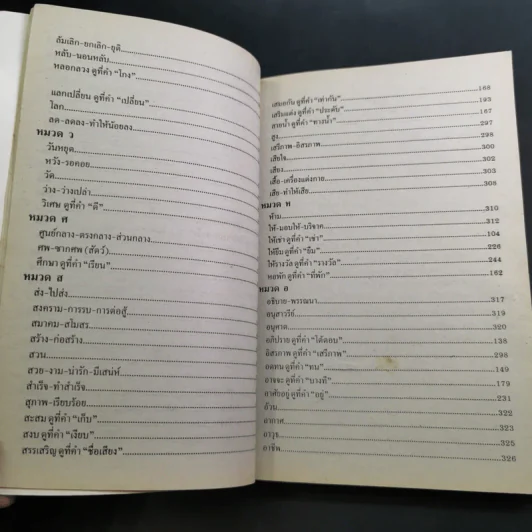 ล้มเลิก-ยกเลิก-ยุติ
หลับ-นอนหลับ
หลอกลวง ดูที่คำ "โกง"
แลกเปลี่ยน ดูที่คำ "เปลี่ยน"
โลก
ลด-ลดลง-ทำให้น้อยลง
หมวด ว
วันหยุด
หวัง-รอคอย
วัด
ว่าง-ว่างเปล่า
วิเศษ ดูที่คำ "ดี"
หมวด ศ
ศูนย์กลาง-ตรงกลาง-ส่วนกลาง
ศพ-ซากศพ (สัตว์)
ศึกษา ดูที่คำ "เรียน"
หมวด ส
ส่ง-ไปส่ง
สงคราม-การรบ-การต่อสู้
สมาคม-สโมสร
สร้าง-ก่อสร้าง
สวน
สวย-งาม-น่ารัก-มีเสน่ห์
สำเร็จ-ทำสำเร็จ
สุภาพ-เรียบร้อย
สะสม ดูที่คำ "เก็บ"
สงบ ดูที่คำ "เงียบ"
สรรเสริญ ดูที่คำ "ชื่อเสียง"
เสมอกัน ดูที่คำ "เท่ากัน" 168
เสริมแต่ง ดูที่คำ "ประดับ" 193
สายน้ำ ดูที่คำ "ทางน้ำ" 167
สูง 297
เสรีภาพ-อิสรภาพ 298
เสียใจ 300
เสียง 302
เสื้อ-เครื่องแต่งกาย 303
เสีย-ทำให้เสีย 308
หมวด ห
ห้าม 310
ให้-มอบให้-บริจาค 312
ให้เช่า ดูที่คำ "เช่า" 104
ให้ยืม ดูที่คำ "ยืม" 226
ให้รางวัล ดูที่คำ "รางวัล" 244
หอพัก ดูที่คำ "ที่พัก" 162
หมวด อ
อธิบาย-พรรณนา 317
อนุสาวรีย์ 319
อนุญาต 320
อภิปราย ดูที่คำ "โต้ตอบ" 138
อิสรภาพ ดูที่คำ "เสรีภาพ" 298
อดทน ดูที่คำ "ทน" 149
อาจจะ ดูที่คำ "บางที" 179
อาศัยอยู่ ดูที่คำ "อยู่" 231
อ้วน 322
อากาศ 323
อาวุธ 325
อาชีพ 326